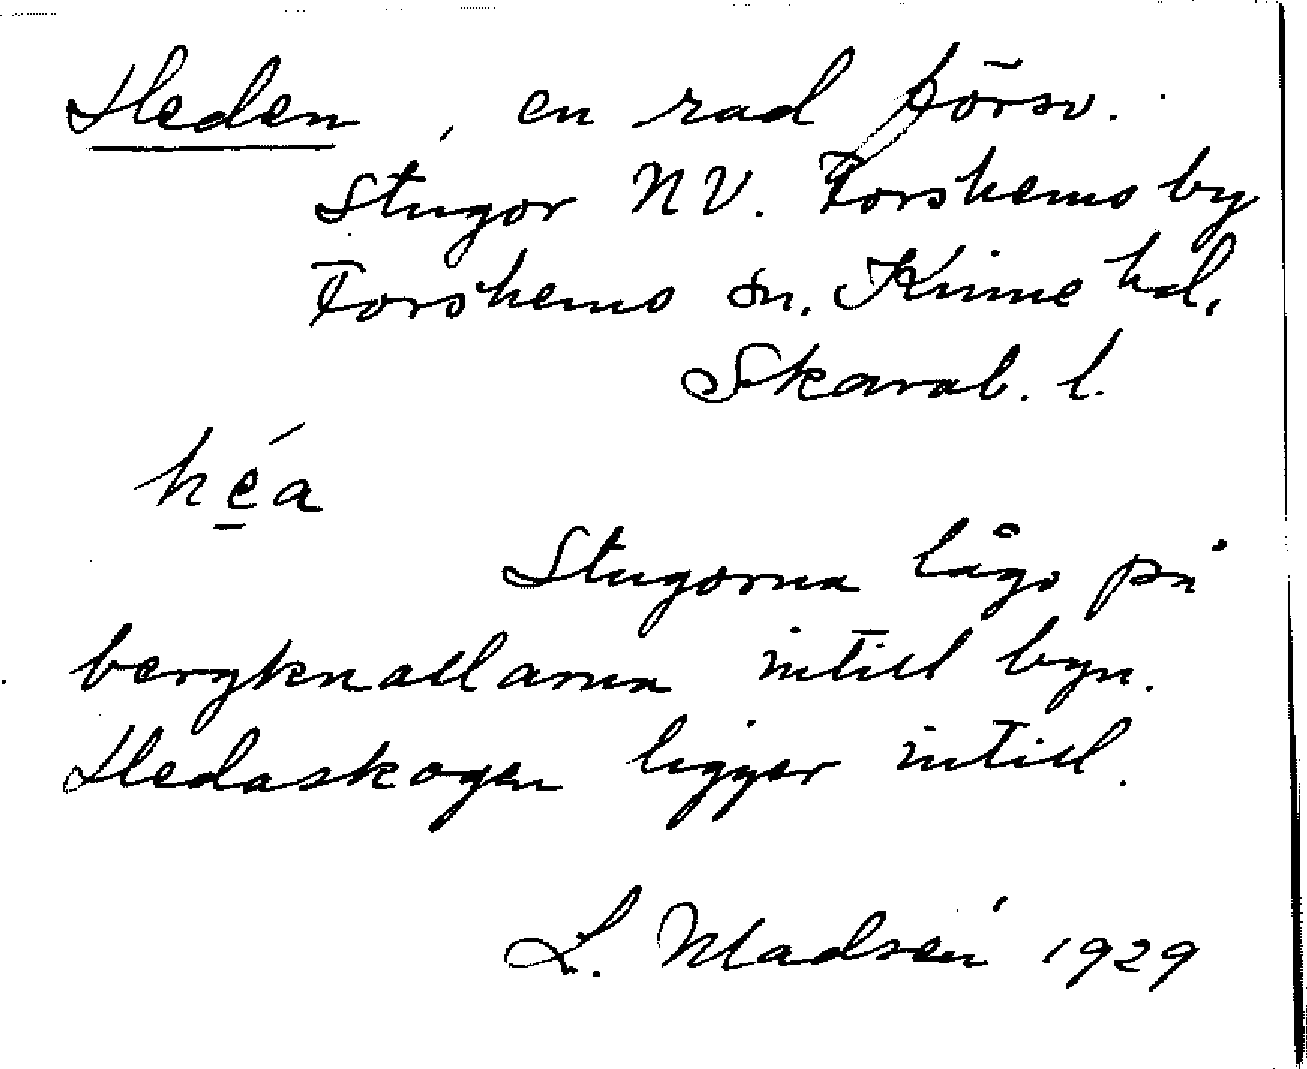 Heden, en rad försv.
stugor NV. Forshems by
Forshems sn. Kinne hd.
Skarab. l.
he̲´a
Stugorna lågo på
bergknallarna intill byn.
Hedaskogen ligger intill.
L. Madsén 1929